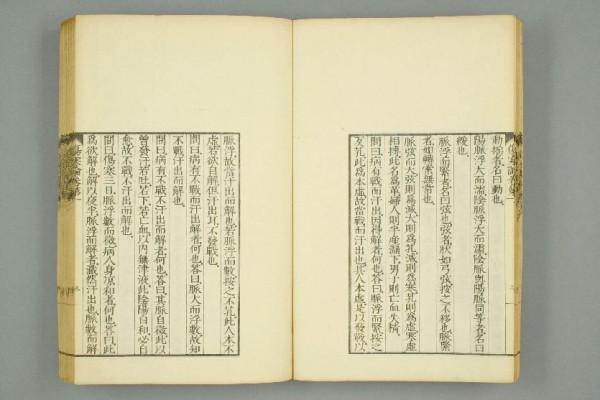 動搖者名曰動也
陽脈浮大而濡陰脈浮大而濡陰脈與陽脈同等者名曰
緩也
脈浮而緊者名曰弦也弦者狀如弓弦按之不移也脈緊
者如轉索無常也
脈弦而大弦則爲減大則爲芤減則爲寒芤則爲虛寒虛
相搏此名爲革婦人則半產漏下男子則亡血失精
問曰病有戰而汗出因得解者何也答曰脈浮而緊按之
反芤此爲本虛故當戰而汗出也其人本虛是以發戰以
脈浮故當汗出而解也若脈浮而數按之不芤此人本不
虛若欲自解但汗出耳不發戰也
問曰病有不戰而汗出解者何也答曰脈大而浮數故知
不戰汗出而解也
問曰病有不戰不汗出而解者何也答曰其脈自微此以
曾發汗若吐若下若亡血以內無津液此陰陽自和必自
愈故不戰不汗出而解也
問曰傷寒三日脈浮數而微病人身涼和者何也答曰此
爲欲解也解以夜半脈浮而解者濈然汗出也脈數而解